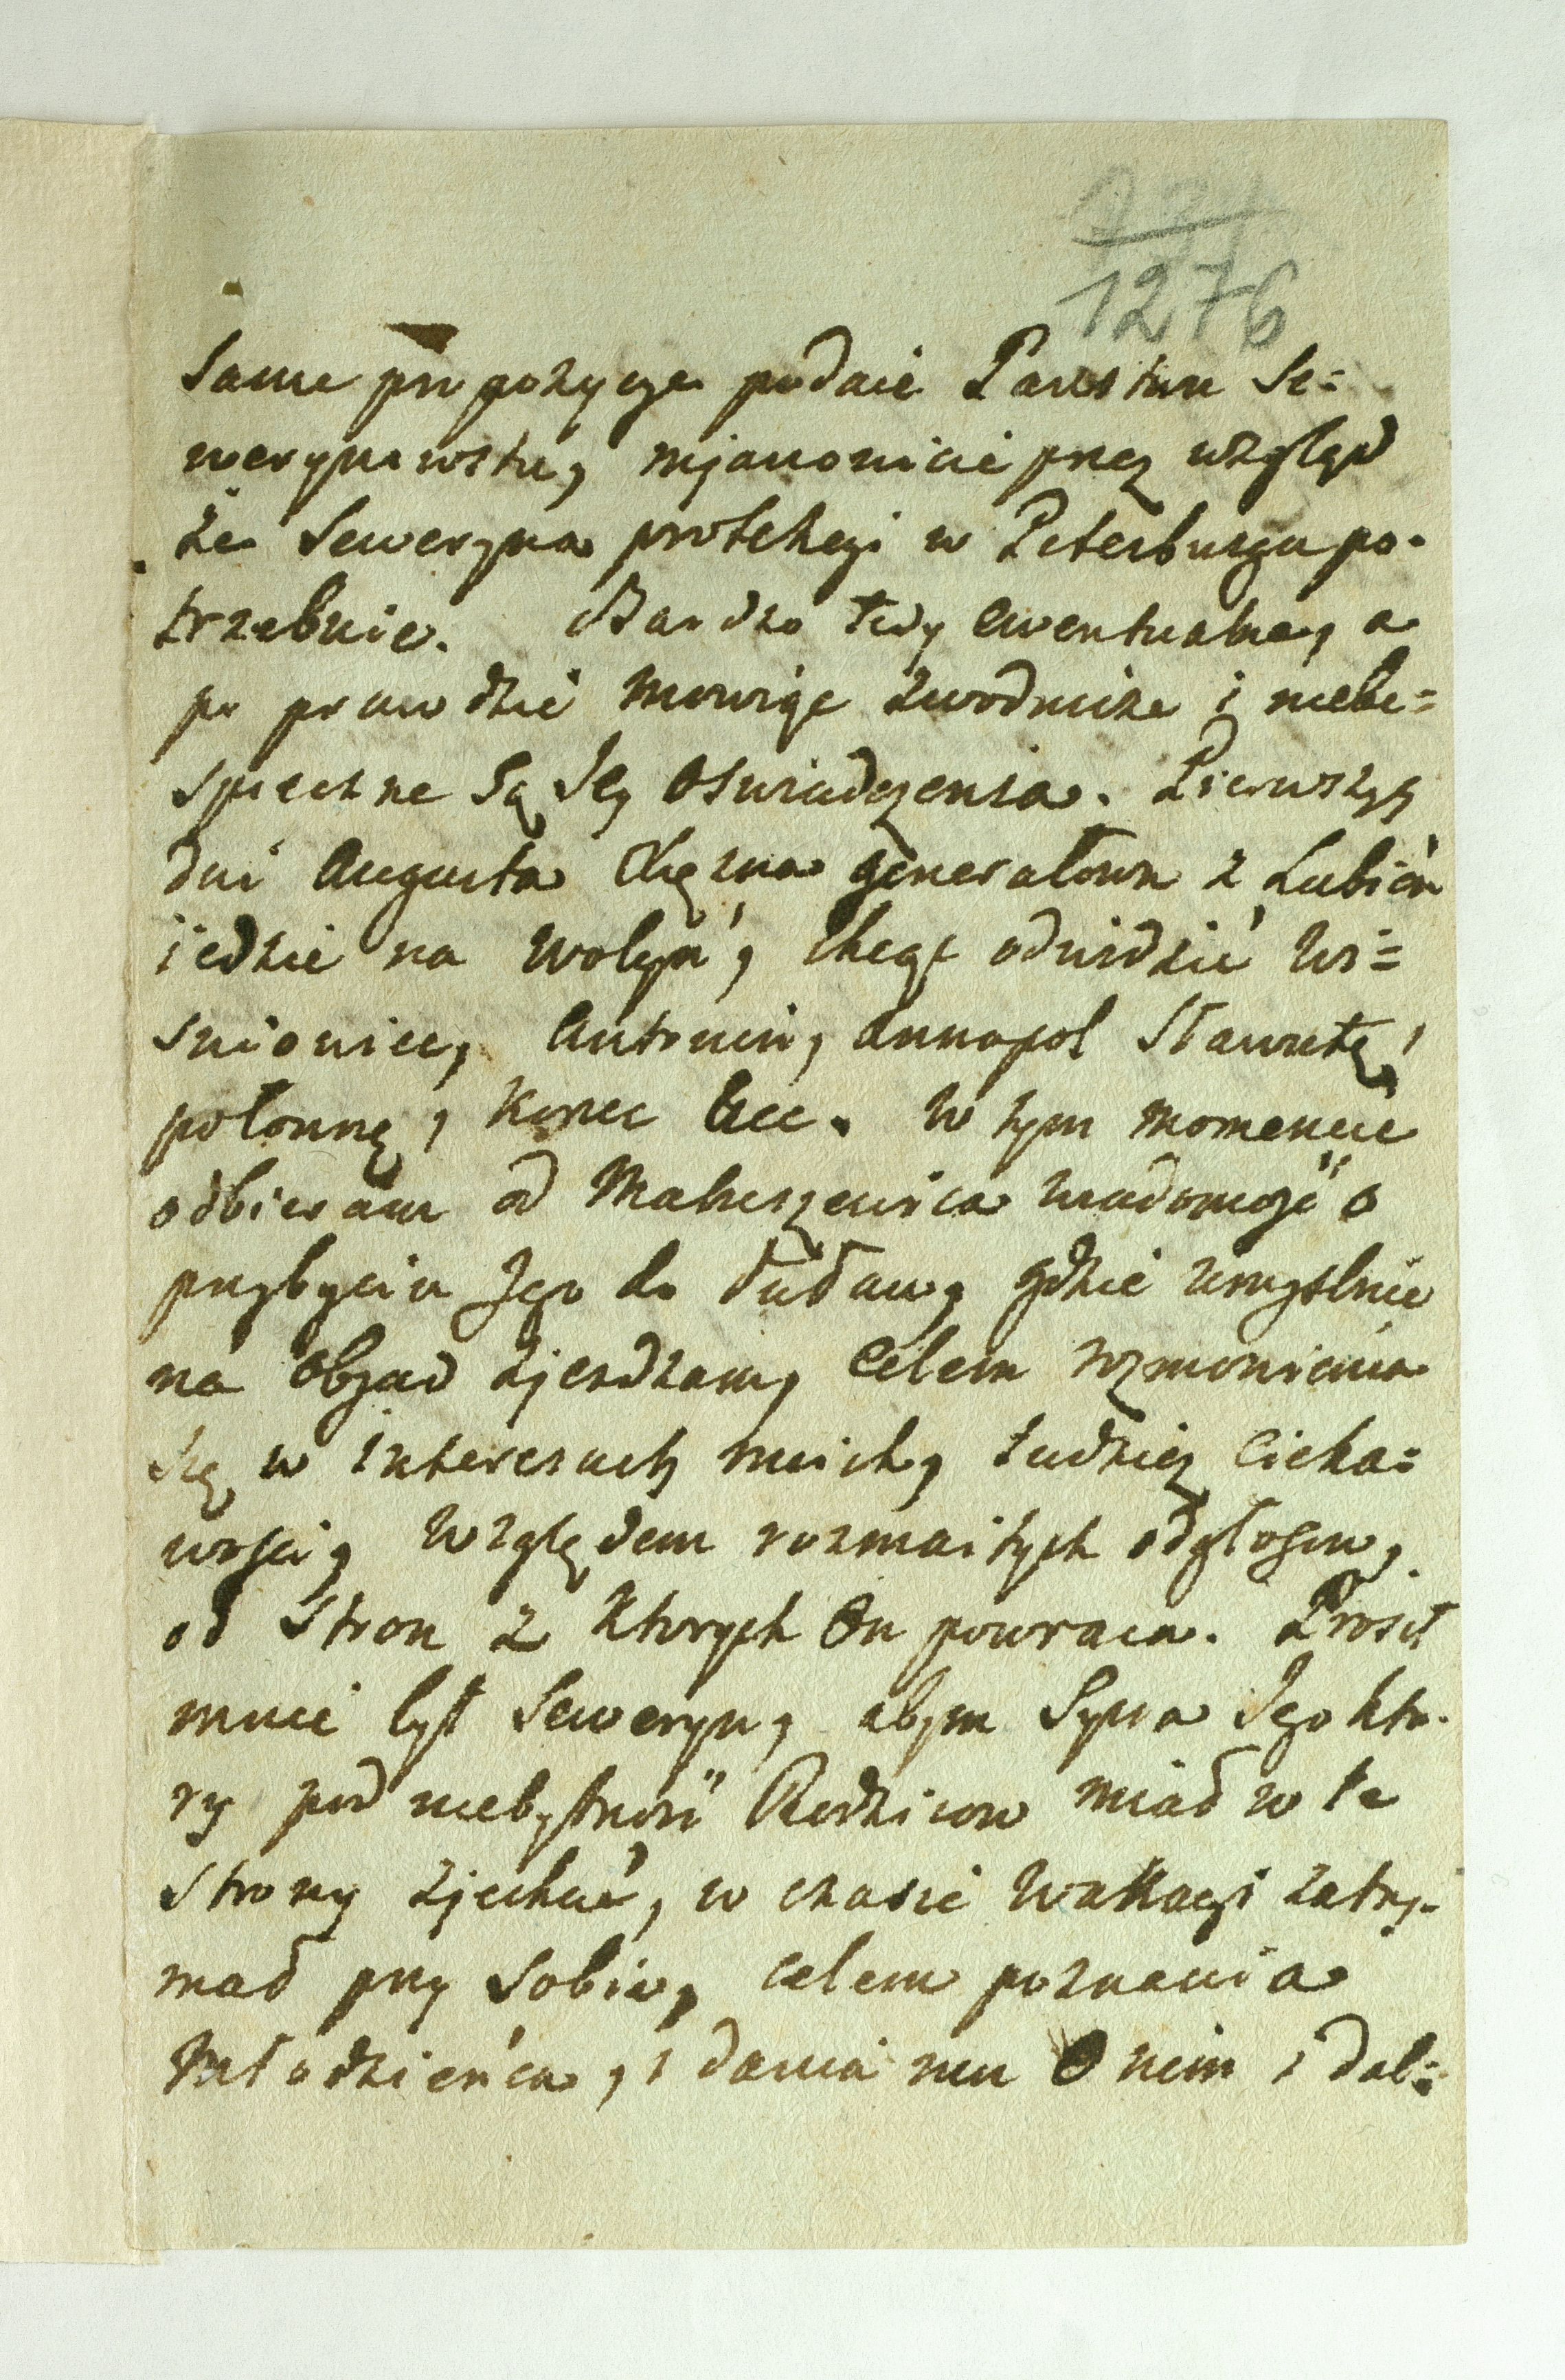 1276
same propozycye podaie Panstwu Se=
werynowstwu, mjanowicie przez wzgląd
że Seweryna protekcyi w Petersburgu po-
trzebuie. Bardzo tedy ewentualne, a
po prawdzie mowiąc zwodnicze i niebe=
spieczne są Jey oswiadczenia. Pierwszych
dni Augusta Xiężna Generałowa z Łubień
iedzie na Wołyń, chcąc odwidzić Wi=
sniowiec, Antonin, Annopol Sławutę,
połonnę, Korzec &cc. W tym momencie
odbieram od Matuszewica wiadomość o
przybyciu Jego do Puław, gdzie umyslnie
na obiad zjeżdżam, celem rozmowienia
się w interesach mych, tudzież cieka=
wości, względem rozmaitych odgłosow,
od stron z ktorych On powraca. Prosił
mnie był Seweryn, abym Syna Jego kto-
ry pod niebytność Rodzicow miał w te
strony zjechać, w czasie Wakacyi zatrzy-
mał przy sobie, celem poznania
Młodzieńca, i dania mu O nim i dal=